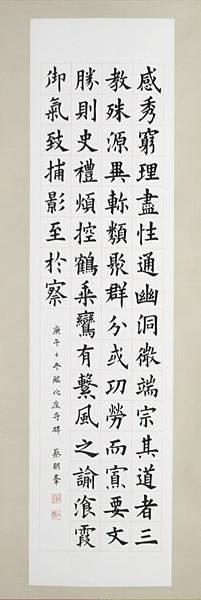 感秀窮理盡性通幽洞微端宗其道者三
教殊源異軫類聚群分或功勞而寡要文
勝則史禮煩控鶴乘鸞有繫風之諭湌霞
御氣致捕影至於察
庚午之冬臨化度寺碑 蔡明峯